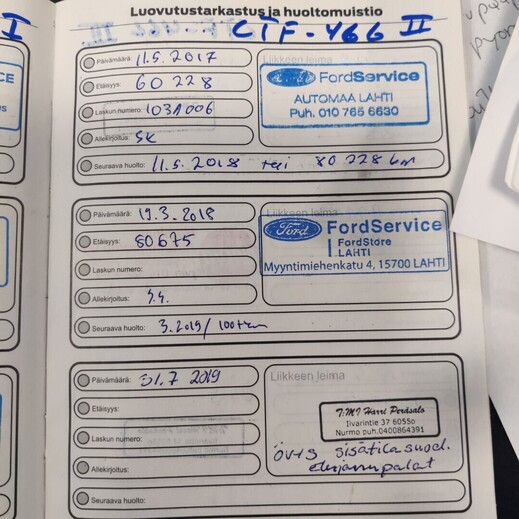 Luovutustarkastus ja huoltomuistio
I CTF-466 II
Päivämäärä: 11.5.2017
Etäisyys: 60 228
Laskun numero: 103A006
Allekirjoitus: SK
Seuraava huolto: 11.5.2018 tai 80 228 km
Ford FordService
AUTOMAA LAHTI
Puh. 010 765 6630
Päivämäärä: 19.3.2018
Liikkeen leima
Etäisyys: 80675
Laskun numero:
Allekirjoitus:
Seuraava huolto: 3.2019/100tkm
Ford FordService
FordStore
LAHTI
Myyntimiehenkatu 4, 15700 LAHTI
Päivämäärä: 31.7 2019
Liikkeen leima
Etäisyys:
Laskun numero:
Allekirjoitus:
Seuraava huolto:
T:MI Harri Peräsalo
Iivarintie 37 60550
Nurmo puh.0400864391
öv+s sisätilasuod.